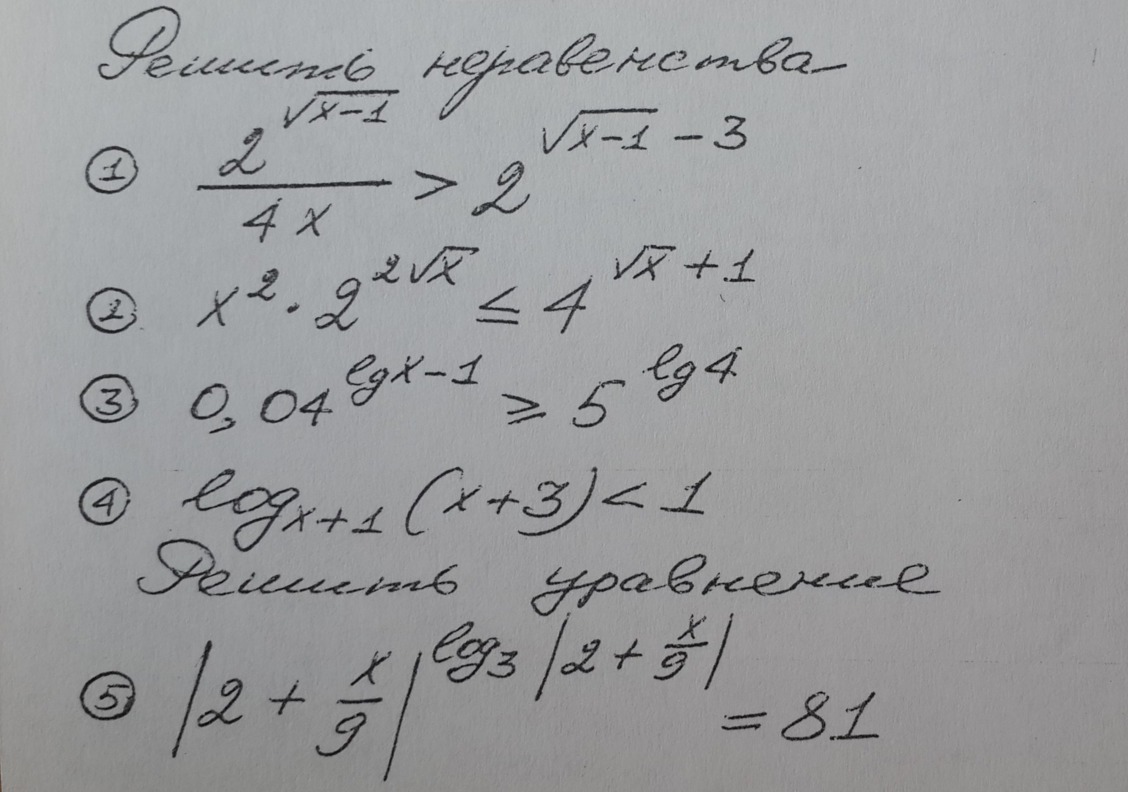 Решить неравенства
① 2^{√(x-1)} / 4x > 2^{√(x-1) - 3}
② x² · 2^{2√x} ≤ 4^{√x + 1}
③ 0,04^{lg x - 1} ≥ 5^{lg 4}
④ log_{x+1} (x+3) < 1
Решить уравнение
⑤ |2 + x/9|^{log₃ |2 + x/9|} = 81